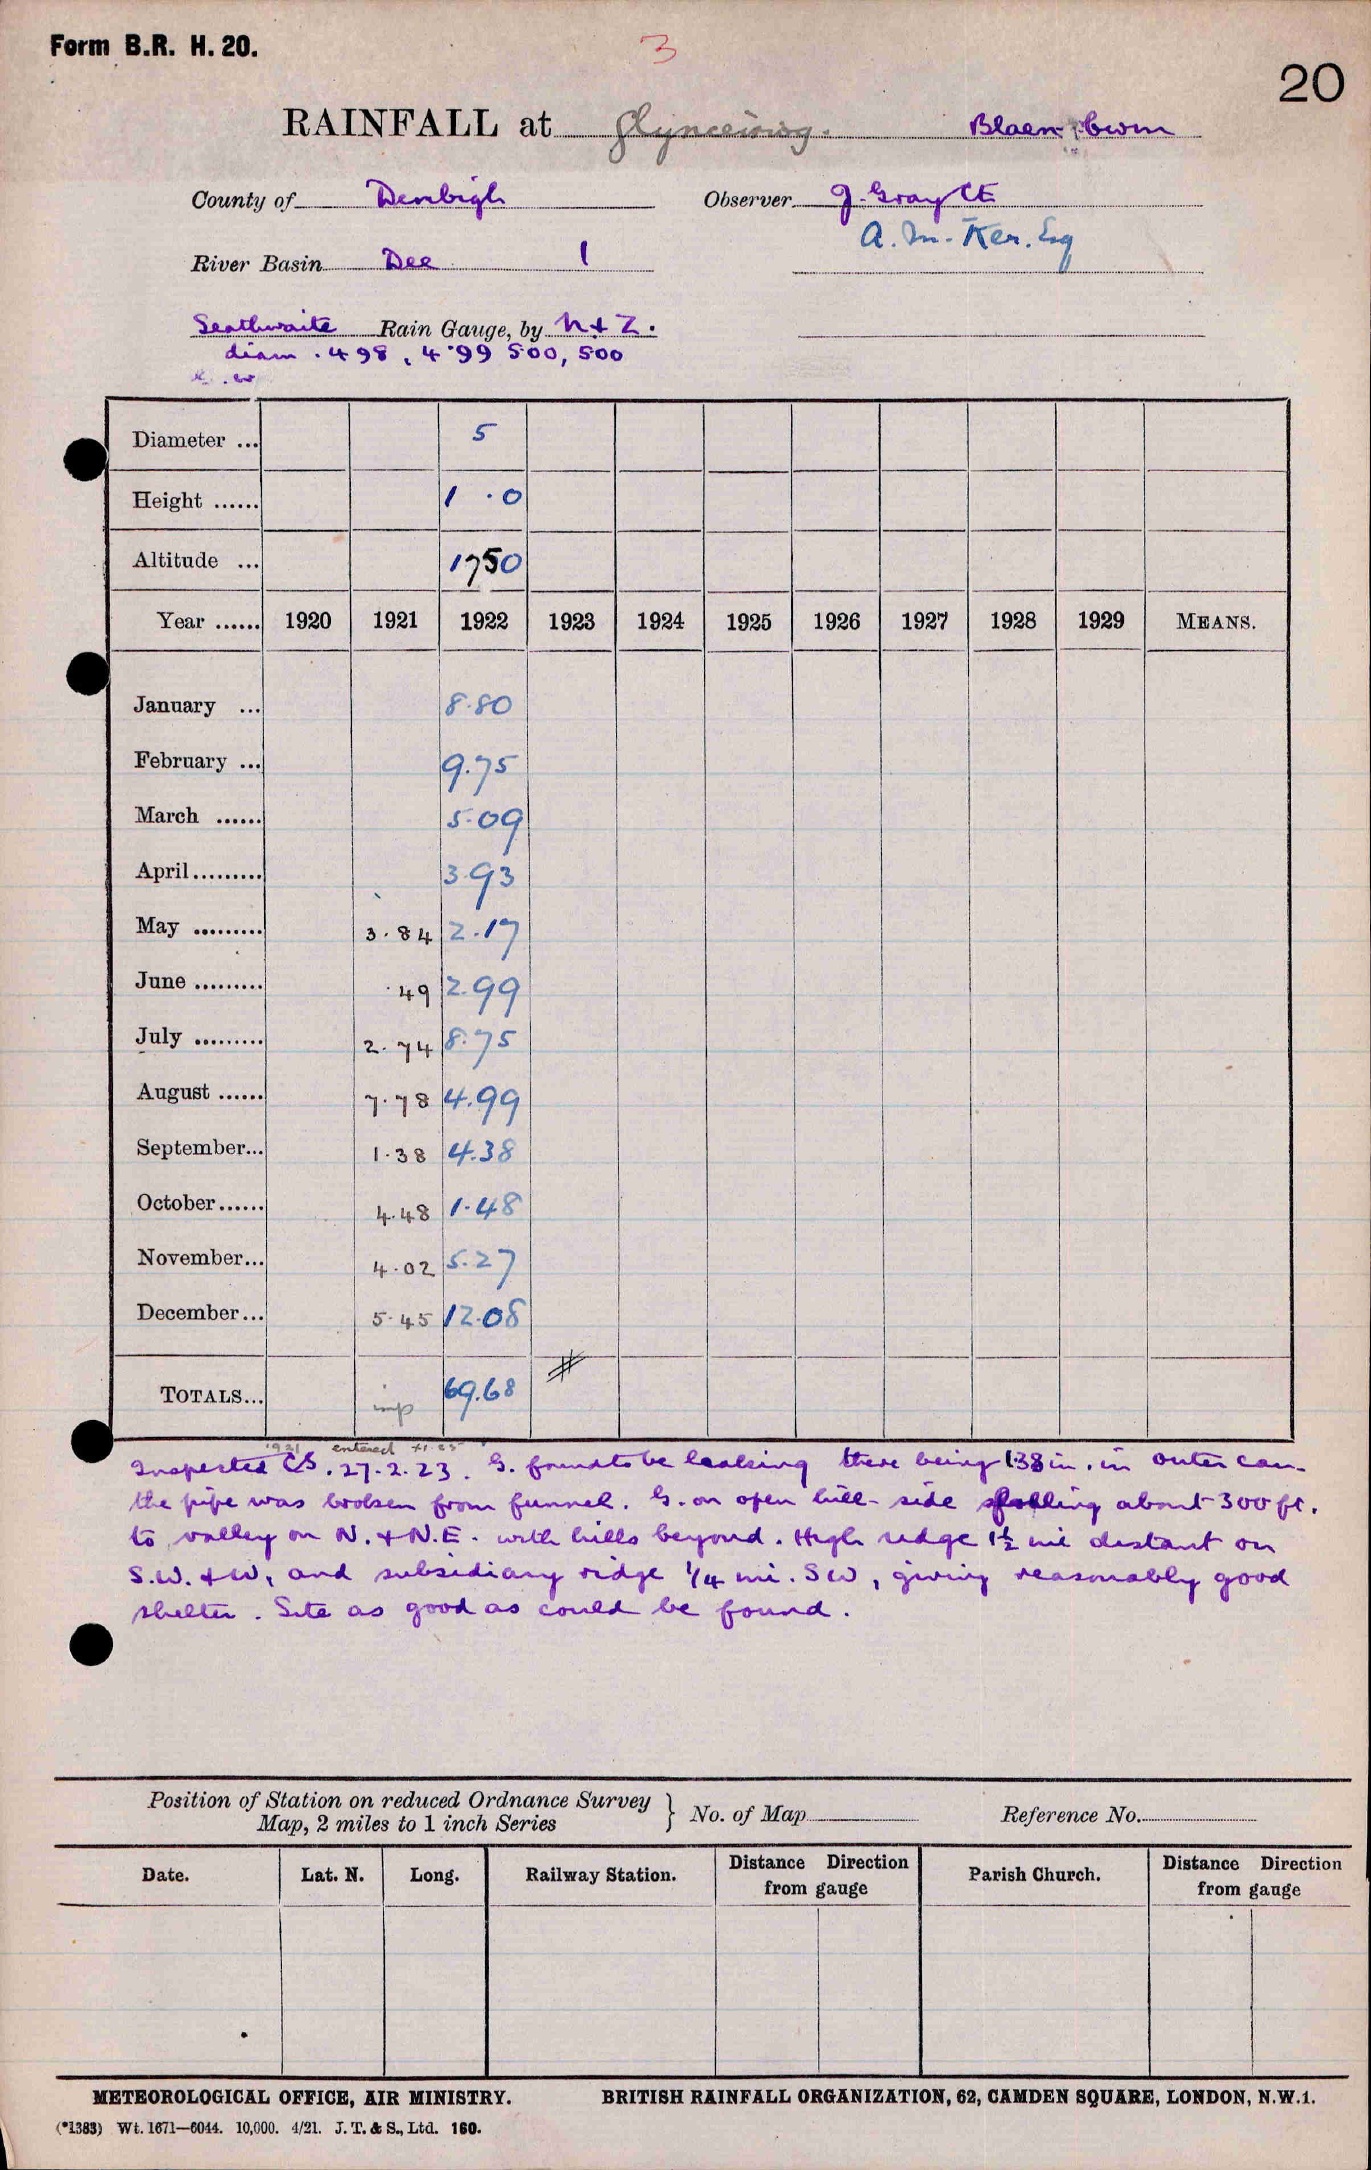 Form B.R. H. 20.
3
20
RAINFALL at Glynceiriog. Blaen-y-cwm
County of Denbigh Observer J. Gray CE
A. M. Ker. Esq
River Basin Dee 1
Seathwaite Rain Gauge, by N + Z.
diam .498, 4.99 500, 500
Diameter ... 5
Height ...... 1 . 0
Altitude ... 1750
Year ...... 1920 1921 1922 1923 1924 1925 1926 1927 1928 1929 MEANS.
January ... 8.80
February ... 9.75
March ...... 5.09
April......... 3.93
May ......... 3.84 2.17
June ......... .49 2.99
July ......... 2.74 8.75
August ...... 7.78 4.99
September... 1.38 4.38
October...... 4.48 1.48
November... 4.02 5.27
December... 5.45 12.08
TOTALS... imp 69.68
1921 entered
Inspected CS. 27.2.23. G. found to be leaking there being 138 in. in outer can.
the pipe was broken from funnel. G. on open hill-side falling about 300 ft.
to valley on N. + N.E. with hills beyond. High ridge 1½ mi distant on
S.W. + W, and subsidiary ridge 1/4 mi. SW, giving reasonably good
shelter. Site as good as could be found.
Position of Station on reduced Ordnance Survey
Map, 2 miles to 1 inch Series } No. of Map Reference No.
Date. Lat. N. Long. Railway Station. Distance Direction from gauge Parish Church. Distance Direction from gauge
METEOROLOGICAL OFFICE, AIR MINISTRY. BRITISH RAINFALL ORGANIZATION, 62, CAMDEN SQUARE, LONDON, N.W.1.
(*1383) Wt. 1671—6044. 10,000. 4/21. J. T. & S., Ltd. 160.